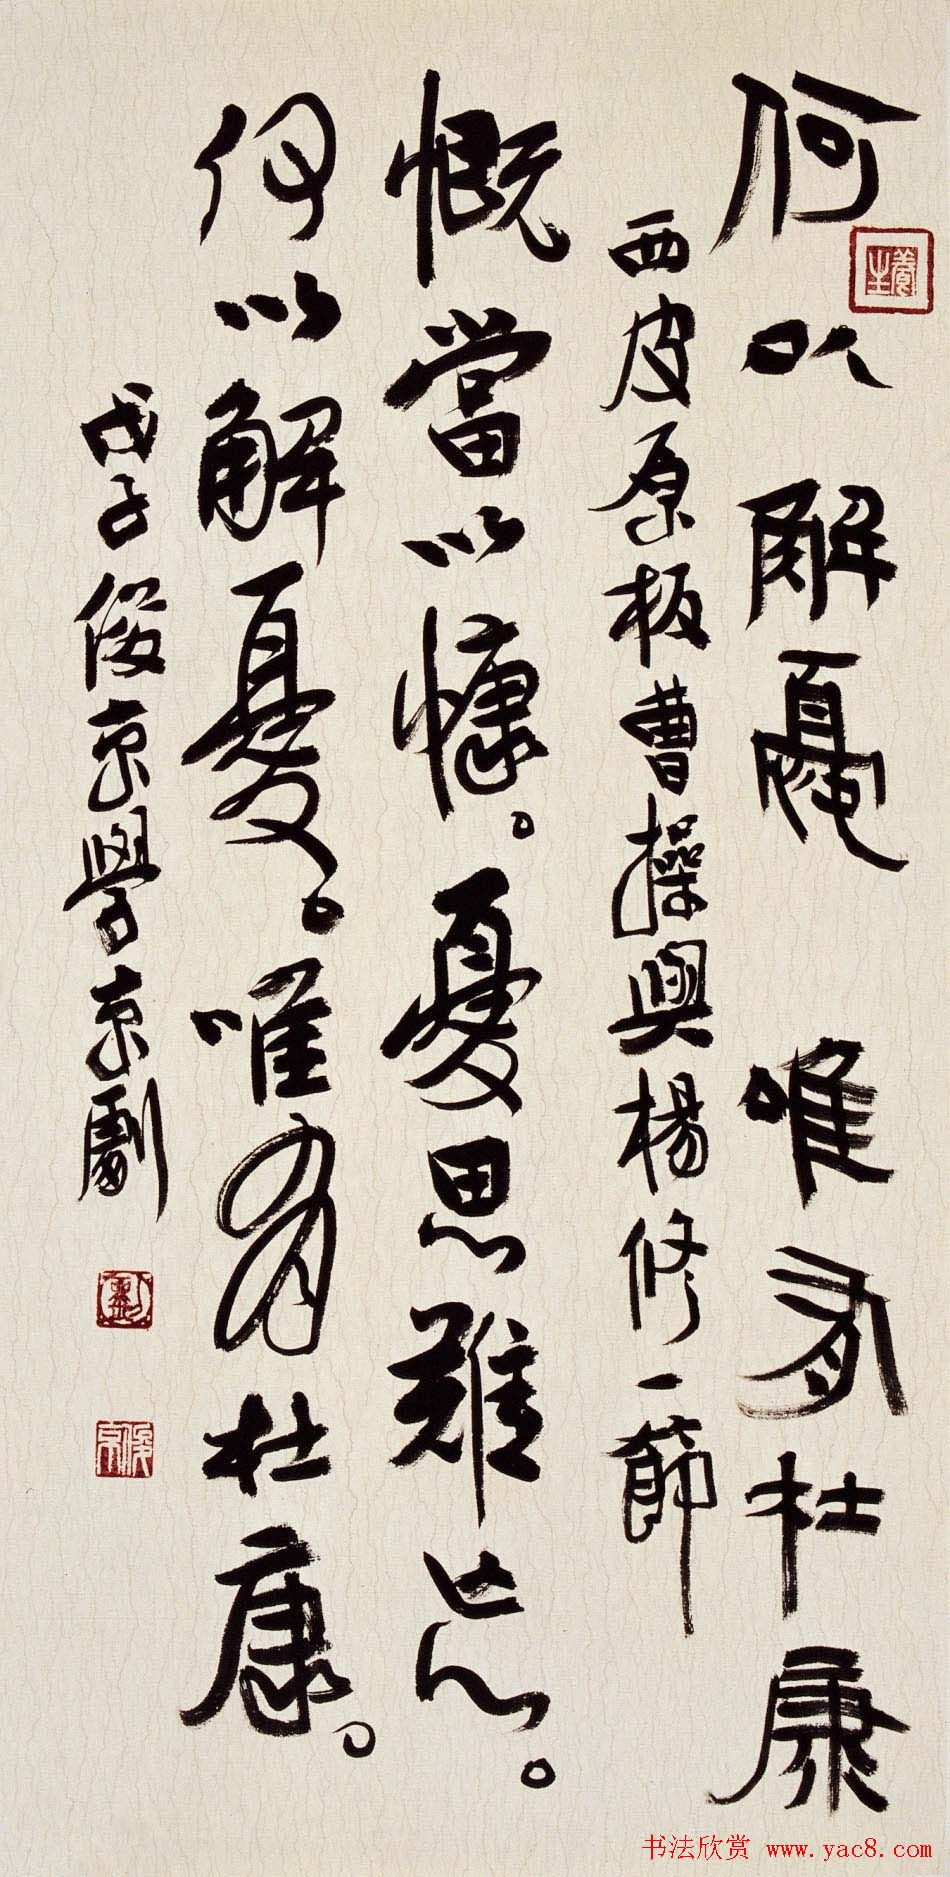 何以解憂 唯有杜康
西皮原板曹操與楊修一節
慨當以慷。憂思難忘。
何以解憂。唯有杜康。
戊子俊京學京劇
養生
劉
俊京
书法欣赏 www.yac8.com